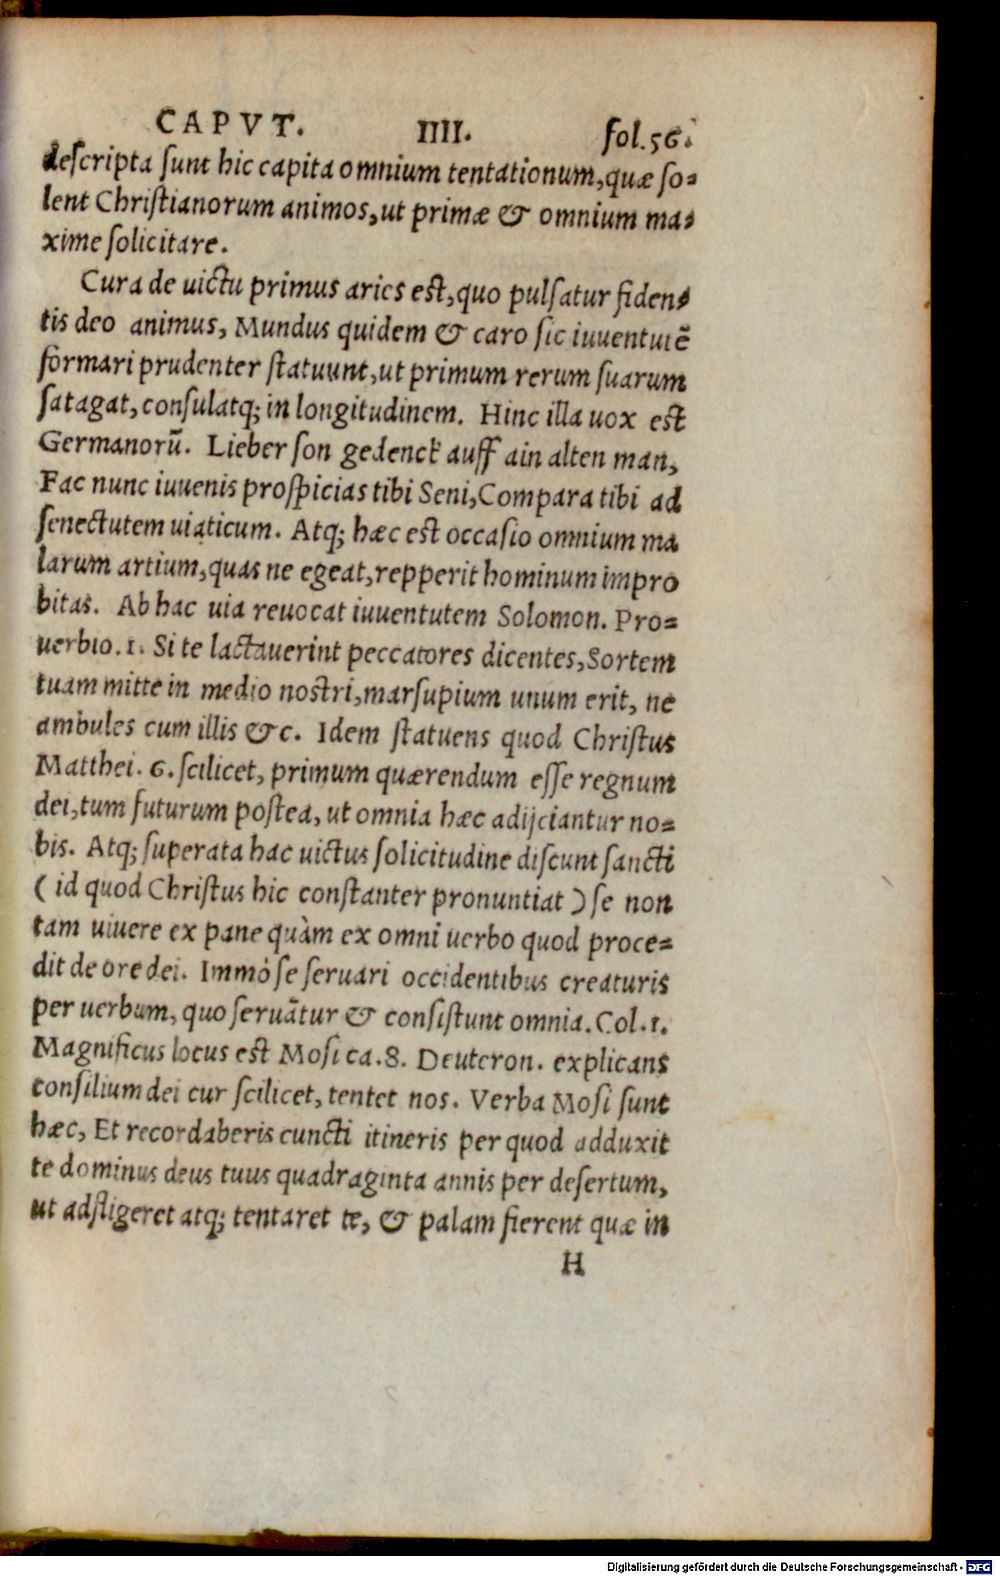 CAPVT. IIII. fol.56.
descripta sunt hic capita omnium tentationum, quæ so=
lent Christianorum animos, ut primæ & omnium ma=
xime solicitare.
Cura de uictu primus aries est, quo pulsatur fiden=
tis deo animus, Mundus quidem & caro sic iuuentutē
formari prudenter statuunt, ut primum rerum suarum
satagat, consulatq; in longitudinem. Hinc illa uox est
Germanorū. Lieber son gedenck auff ain alten man,
Fac nunc iuuenis prospicias tibi Seni, Compara tibi ad
senectutem uiaticum. Atq; hæc est occasio omnium ma
larum artium, quas ne egeat, repperit hominum impro
bitas. Ab hac uia reuocat iuuentutem Solomon. Pro=
uerbio.1. Si te lactauerint peccatores dicentes, Sortem
tuam mitte in medio nostri, marsupium unum erit, ne
ambules cum illis &c. Idem statuens quod Christus
Matthei. 6. scilicet, primum quærendum esse regnum
dei, tum futurum postea, ut omnia hæc adijciantur no=
bis. Atq; superata hac uictus solicitudine discunt sancti
( id quod Christus hic constanter pronuntiat ) se non
tam uiuere ex pane quàm ex omni uerbo quod proce=
dit de ore dei. Immò se seruari occidentibus creaturis
per uerbum, quo seruātur & consistunt omnia. Col.1.
Magnificus locus est Mosi ca.8. Deuteron. explicans
consilium dei cur scilicet, tentet nos. Verba Mosi sunt
hæc, Et recordaberis cuncti itineris per quod adduxit
te dominus deus tuus quadraginta annis per desertum,
ut adfligeret atq; tentaret te, & palam fierent quæ in
H
Digitalisierung gefördert durch die Deutsche Forschungsgemeinschaft - DFG